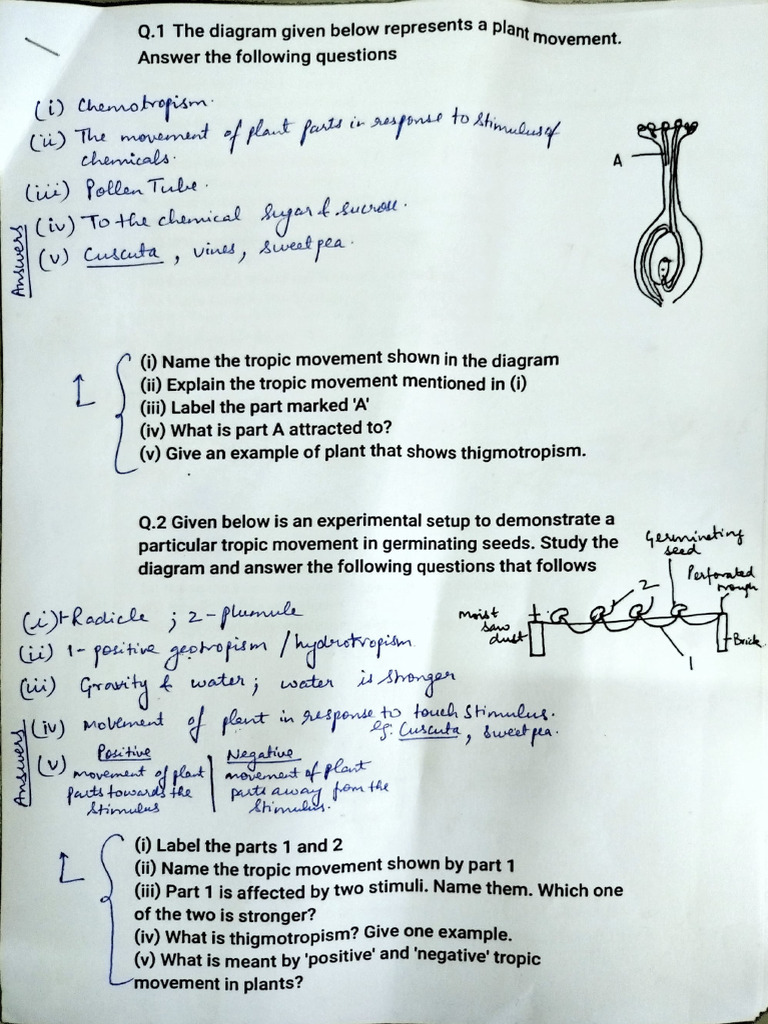 Q.1 The diagram given below represents a plant movement.
Answer the following questions
(i) Chemotropism.
(ii) The movement of plant parts in response to stimulus of
chemicals.
(iii) Pollen Tube.
(iv) To the chemical sugar & sucrose.
(v) Cuscuta, vines, sweet pea.
Answers
A
(i) Name the tropic movement shown in the diagram
(ii) Explain the tropic movement mentioned in (i)
(iii) Label the part marked 'A'
(iv) What is part A attracted to?
(v) Give an example of plant that shows thigmotropism.
Q.2 Given below is an experimental setup to demonstrate a
particular tropic movement in germinating seeds. Study the
diagram and answer the following questions that follows
Germinating
seed
Perforated
trough
2
moist
saw
dust
Brick
1
(i) 1-Radicle ; 2-plumule
(ii) 1-positive geotropism / hydrotropism
(iii) Gravity & water; water is stronger
(iv) Movement of plant in response to touch stimulus.
Eg: Cuscuta, sweet pea.
Answers
(v) Positive
movement of plant
parts towards the
stimulus
Negative
movement of plant
parts away from the
stimulus.
(i) Label the parts 1 and 2
(ii) Name the tropic movement shown by part 1
(iii) Part 1 is affected by two stimuli. Name them. Which one
of the two is stronger?
(iv) What is thigmotropism? Give one example.
(v) What is meant by 'positive' and 'negative' tropic
movement in plants?